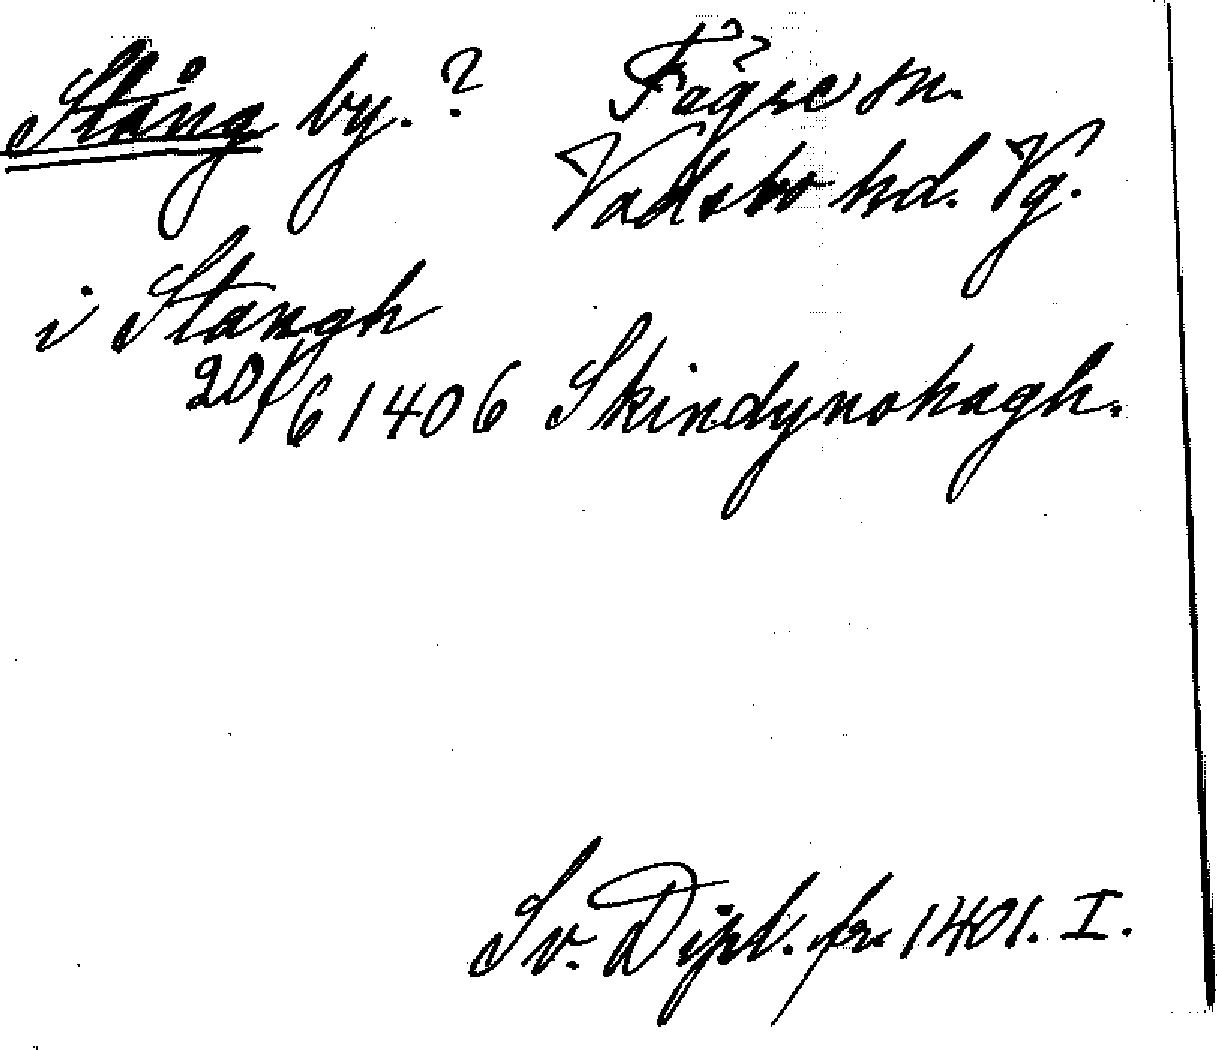 Stång by.? Fägre sn.
Vadsbo hd. Vg.
i Stangh
20/6 1406 Skindynohagh.
Sv. Dipl. fr. 1401. I.